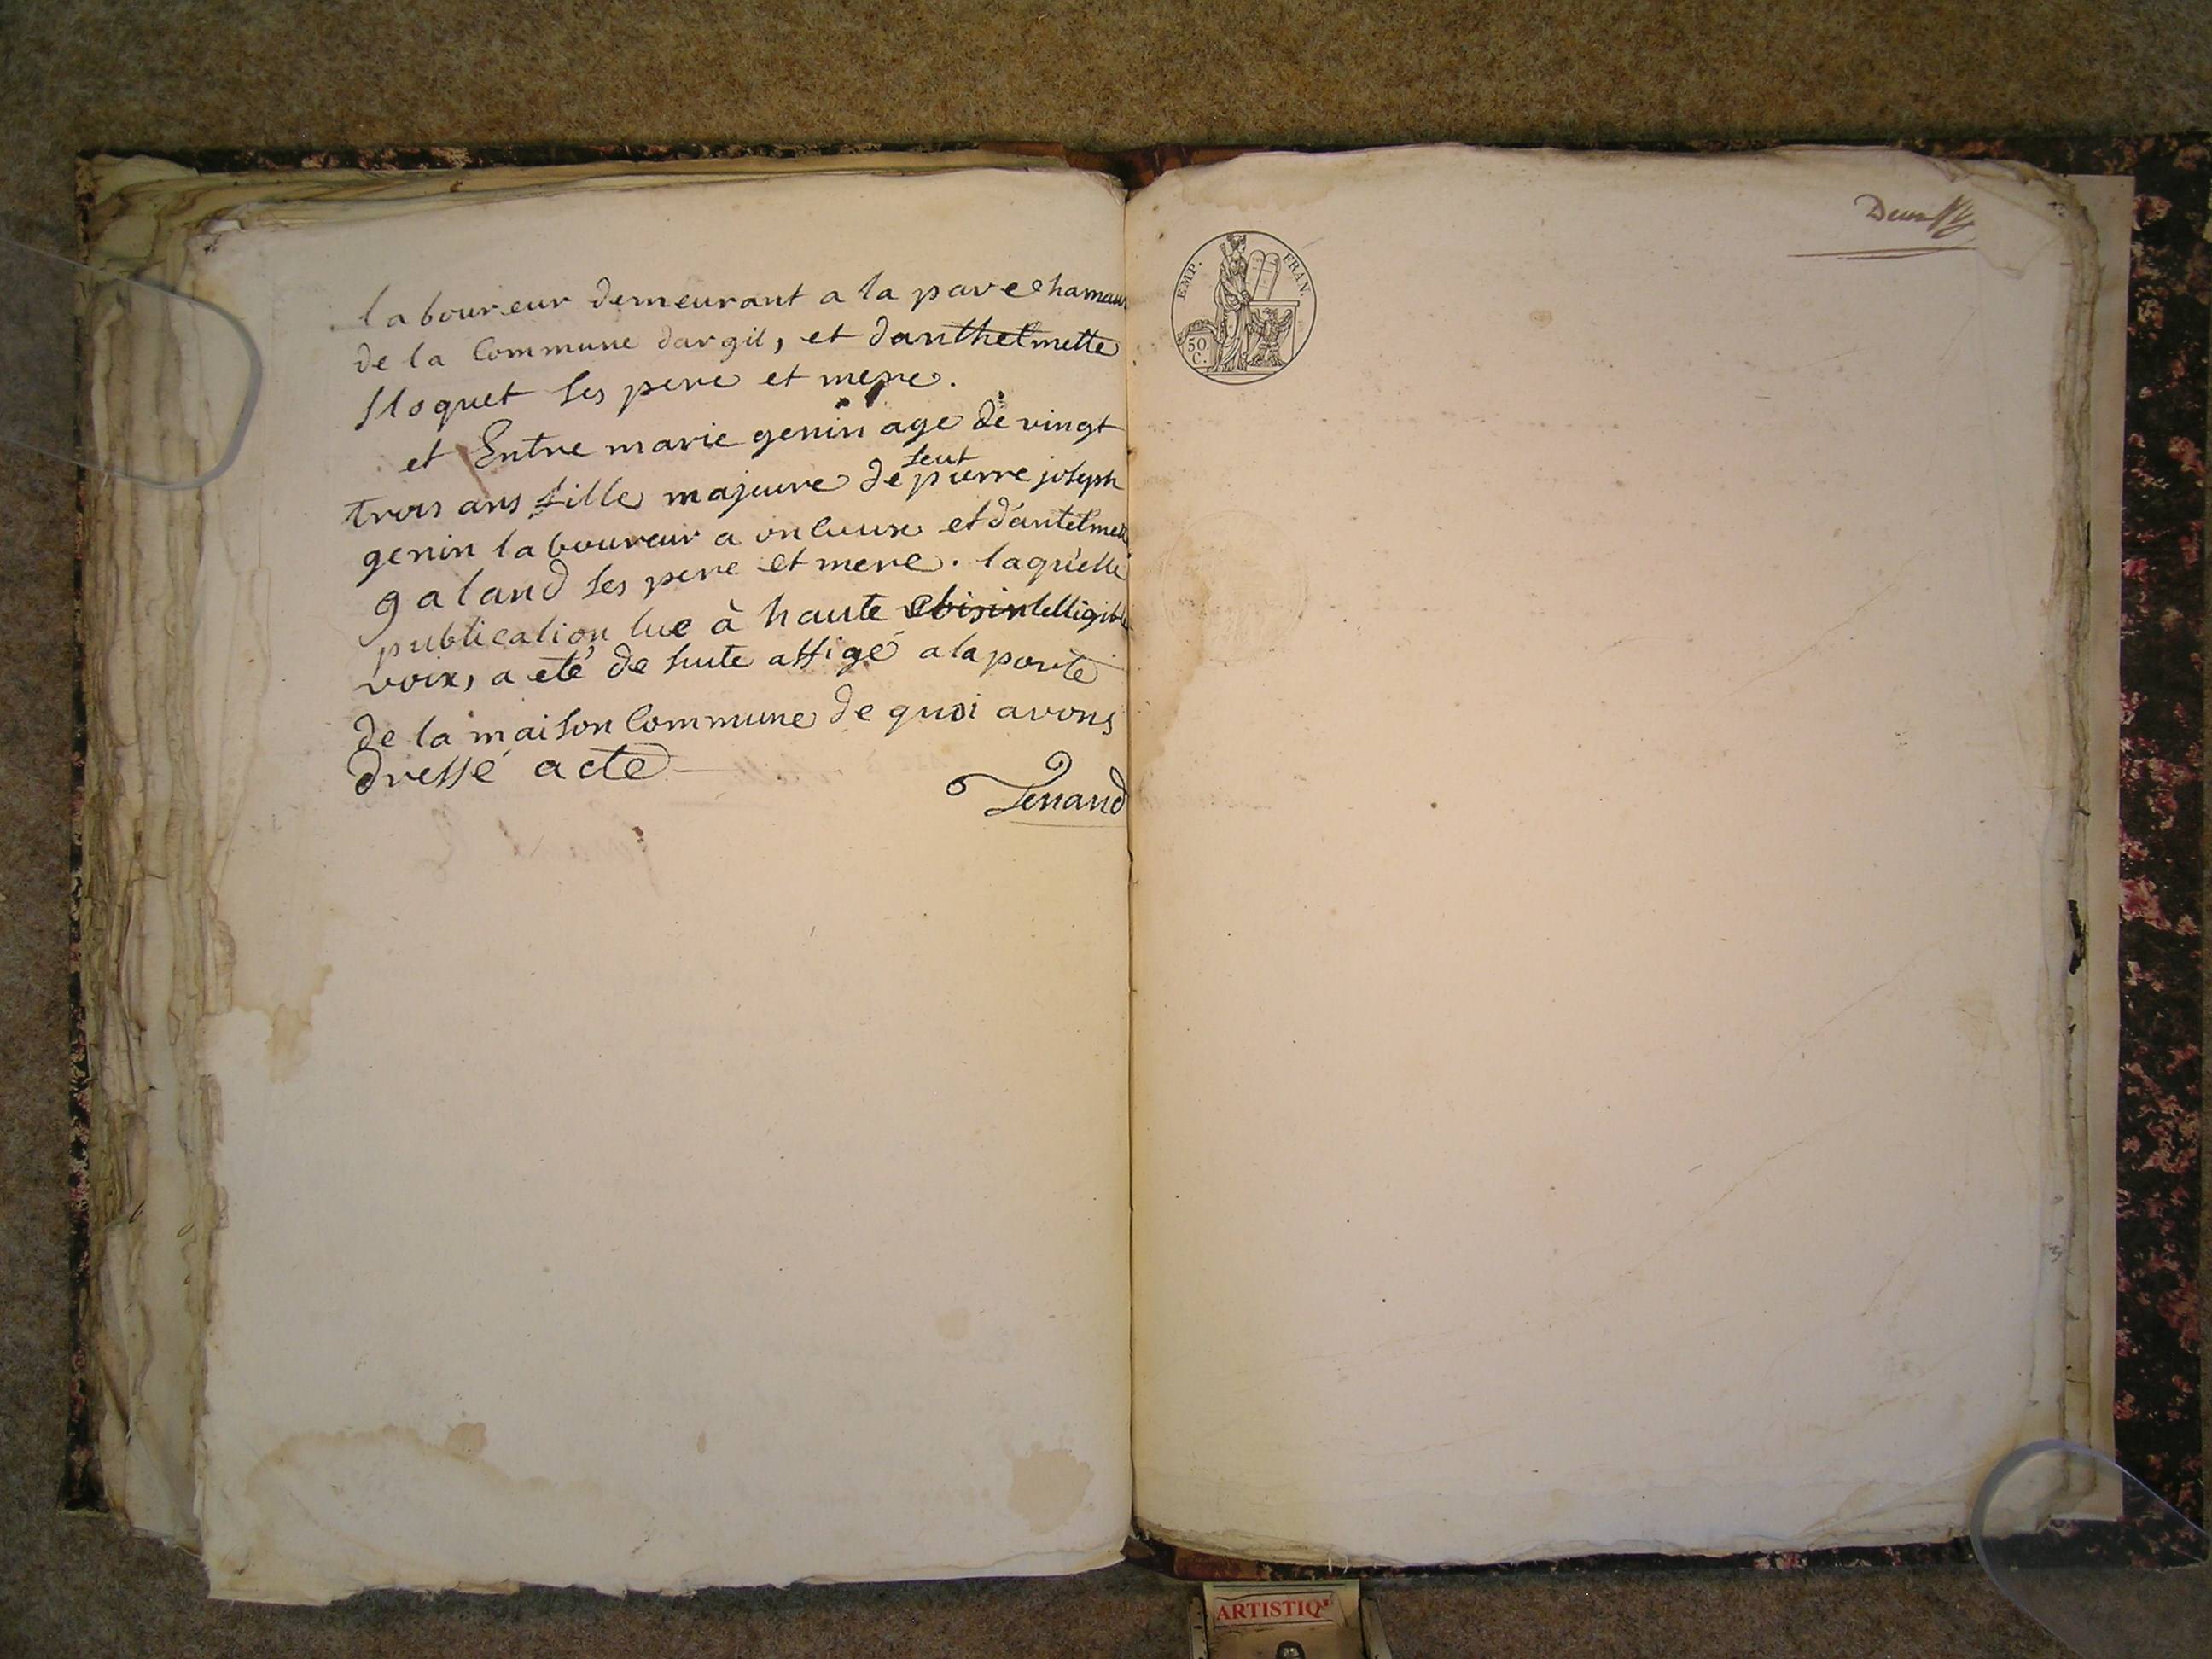 laboureur demeurant a la pave hamau
de la Commune dargil, et danthelmette
floquet ses pere et mere.
et Entre marie genin age de vingt
feut
trois ans fille majeure de pierre joseph
genin laboureur a onlieux et d'antelmet
galand ses pere et mere. laquelle
publication lue à haute intelligible
voix, a eté de suite affigé a la porte
de la maison Commune de quoi avons
dressé acte
Tenand
EMP. FRAN.
50.
C.
ARTISTIQ'